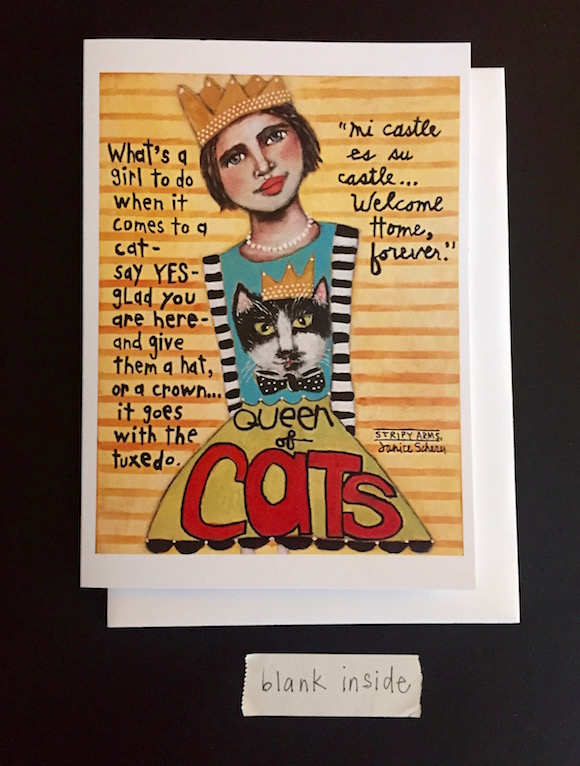 What's a
girl to do
when it
comes to a
cat-
say YES-
glad you
are here-
and give
them a hat,
or a crown...
it goes
with the
tuxedo.
"mi castle
es su
castle...
Welcome
Home,
forever."
Queen
of
CATS
STRIPY ARMS.
Janice Schery
blank inside